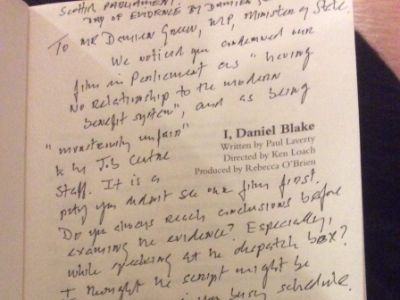 SCOTTISH PARLIAMENT.
DAY OF EVIDENCE BY DAMIEN
To MR Damien Green, MP, Minister of State
We noticed you condemned our
film in Parliament as "having
No relationship to the modern
benefit system", and as being
"monstrously unfair"
to the Job Centre
Staff. It is a
pity you did not see our film first.
Do you always reach conclusions before
examining the evidence? Especially,
while speaking at the dispatch box?
I thought the script might be
in your busy schedule.
I, Daniel Blake
Written by Paul Laverty
Directed by Ken Loach
Produced by Rebecca O'Brien